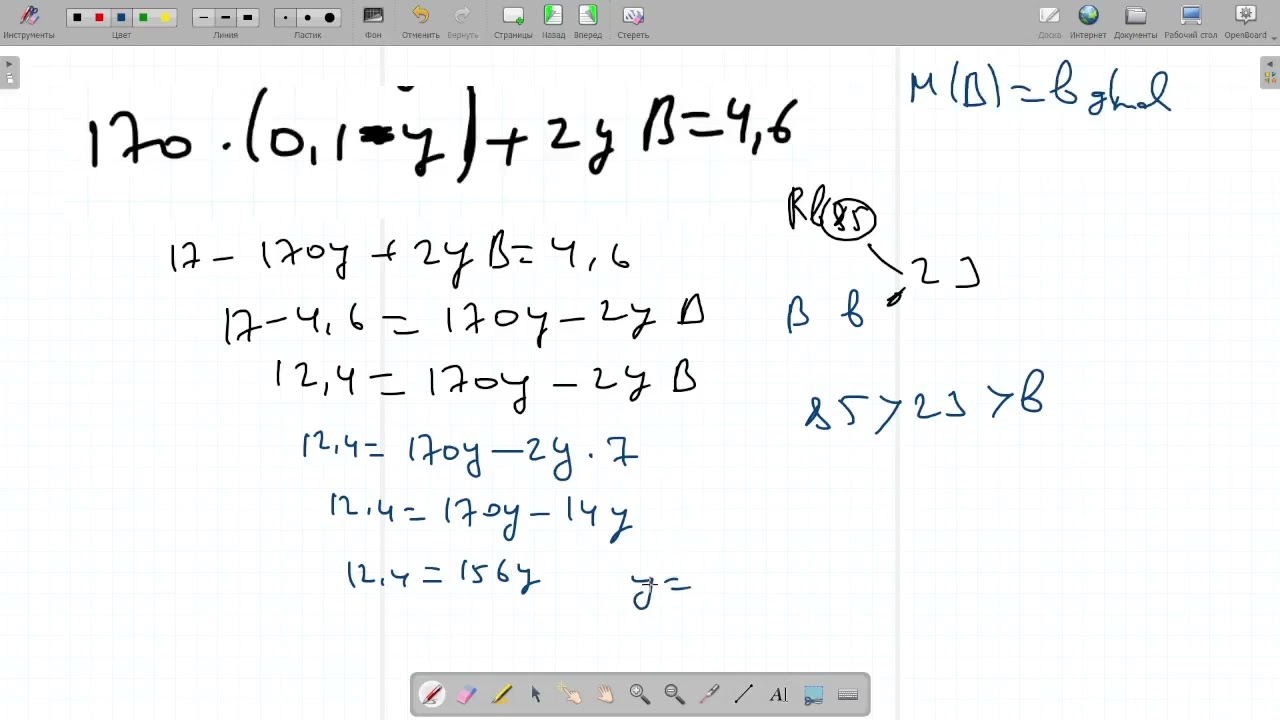 Инструменты Цвет Линия Ластик Фон Отменить Вернуть Страницы Назад Вперед Стереть Доска Интернет Документы Рабочий стол OpenBoard
M(B)=b g/mol
170·(0,1-y)+2yB=4,6
Rb 85
17-170y+2yB=4,6
23
17-4,6=170y-2yB
B b
12,4=170y-2yB
85>23>b
12,4=170y-2y·7
12,4=170y-14y
12,4=156y y=
AI